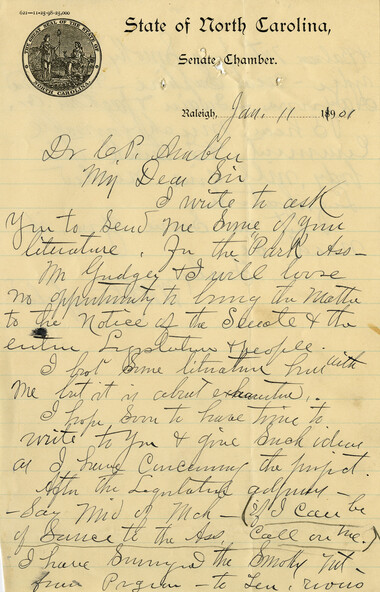 621—11-25-98-25,000
THE GREAT SEAL OF THE STATE OF NORTH CAROLINA
State of North Carolina,
Senate Chamber.
Raleigh, Jan. 11 1901
Dr C.P. Ambler
My Dear Sir
I write to ask
you to send me some of your
literature. For the Park Ass-
Mr Gudger & I will loose
no opportunity to bring the matter
to the notice of the Senate & the
entire Legislature & people.
I had some literature here with
me but it is about exhausted.
I hope soon to have time to
write to you & give such ideas
as I have concerning the project.
After the Legislature adjourns -
- Say Mid of Mch - (if I can be
of service to the Ass, Call on me.)
I have surveyed the Smoky Mt-
from - to Ten,